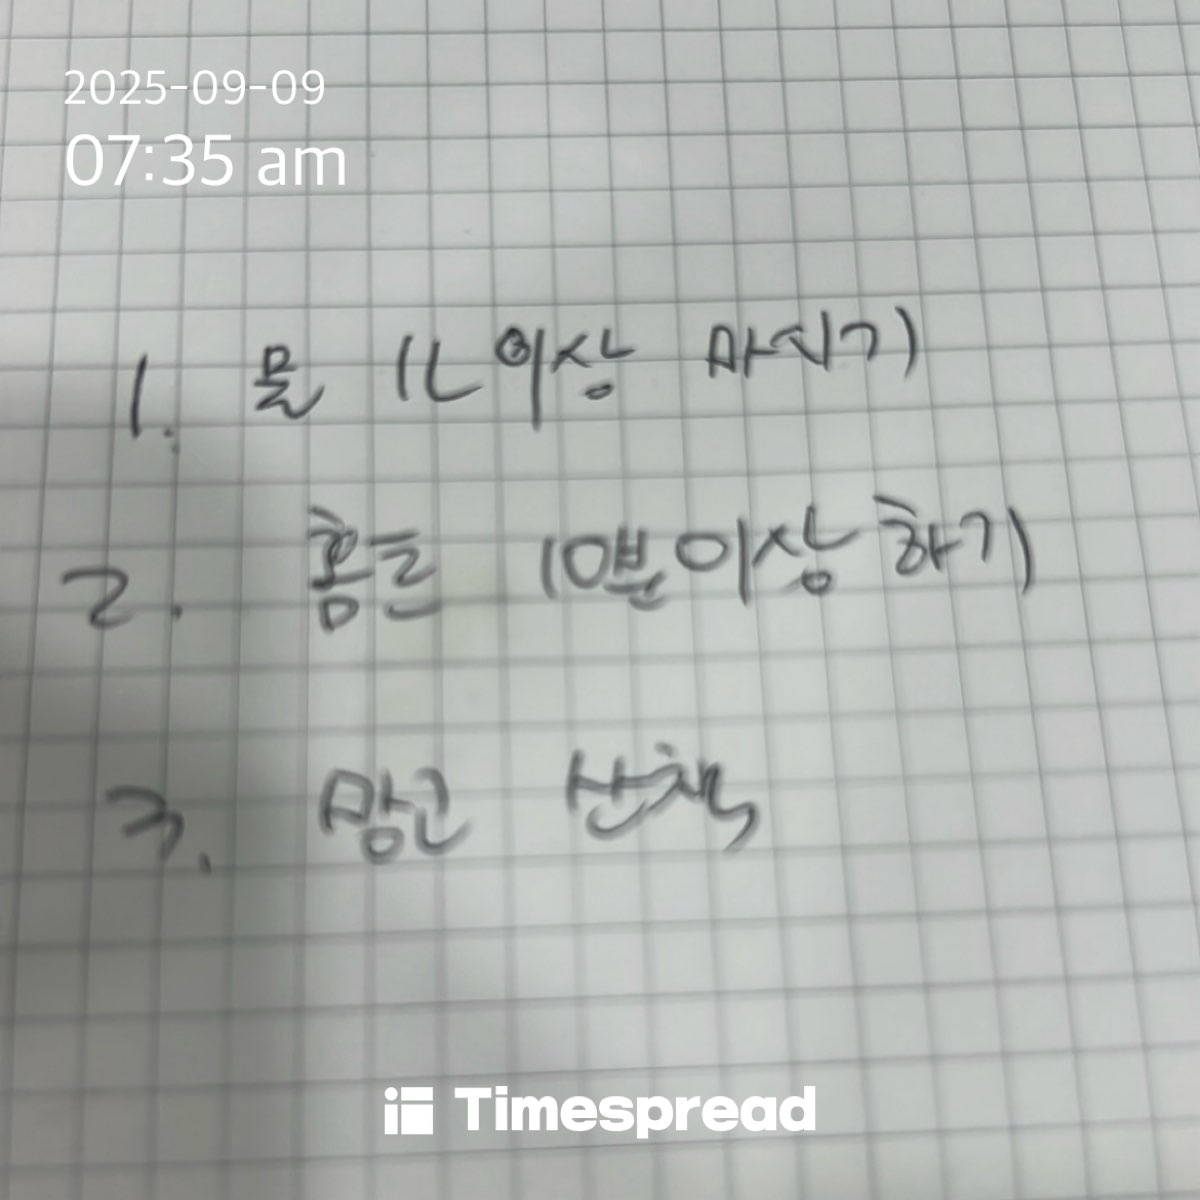 2025-09-09
07:35 am
1. 물 1L 이상 마시기
2. 홈트 10분 이상 하기
3. 망고 산책
Timespread